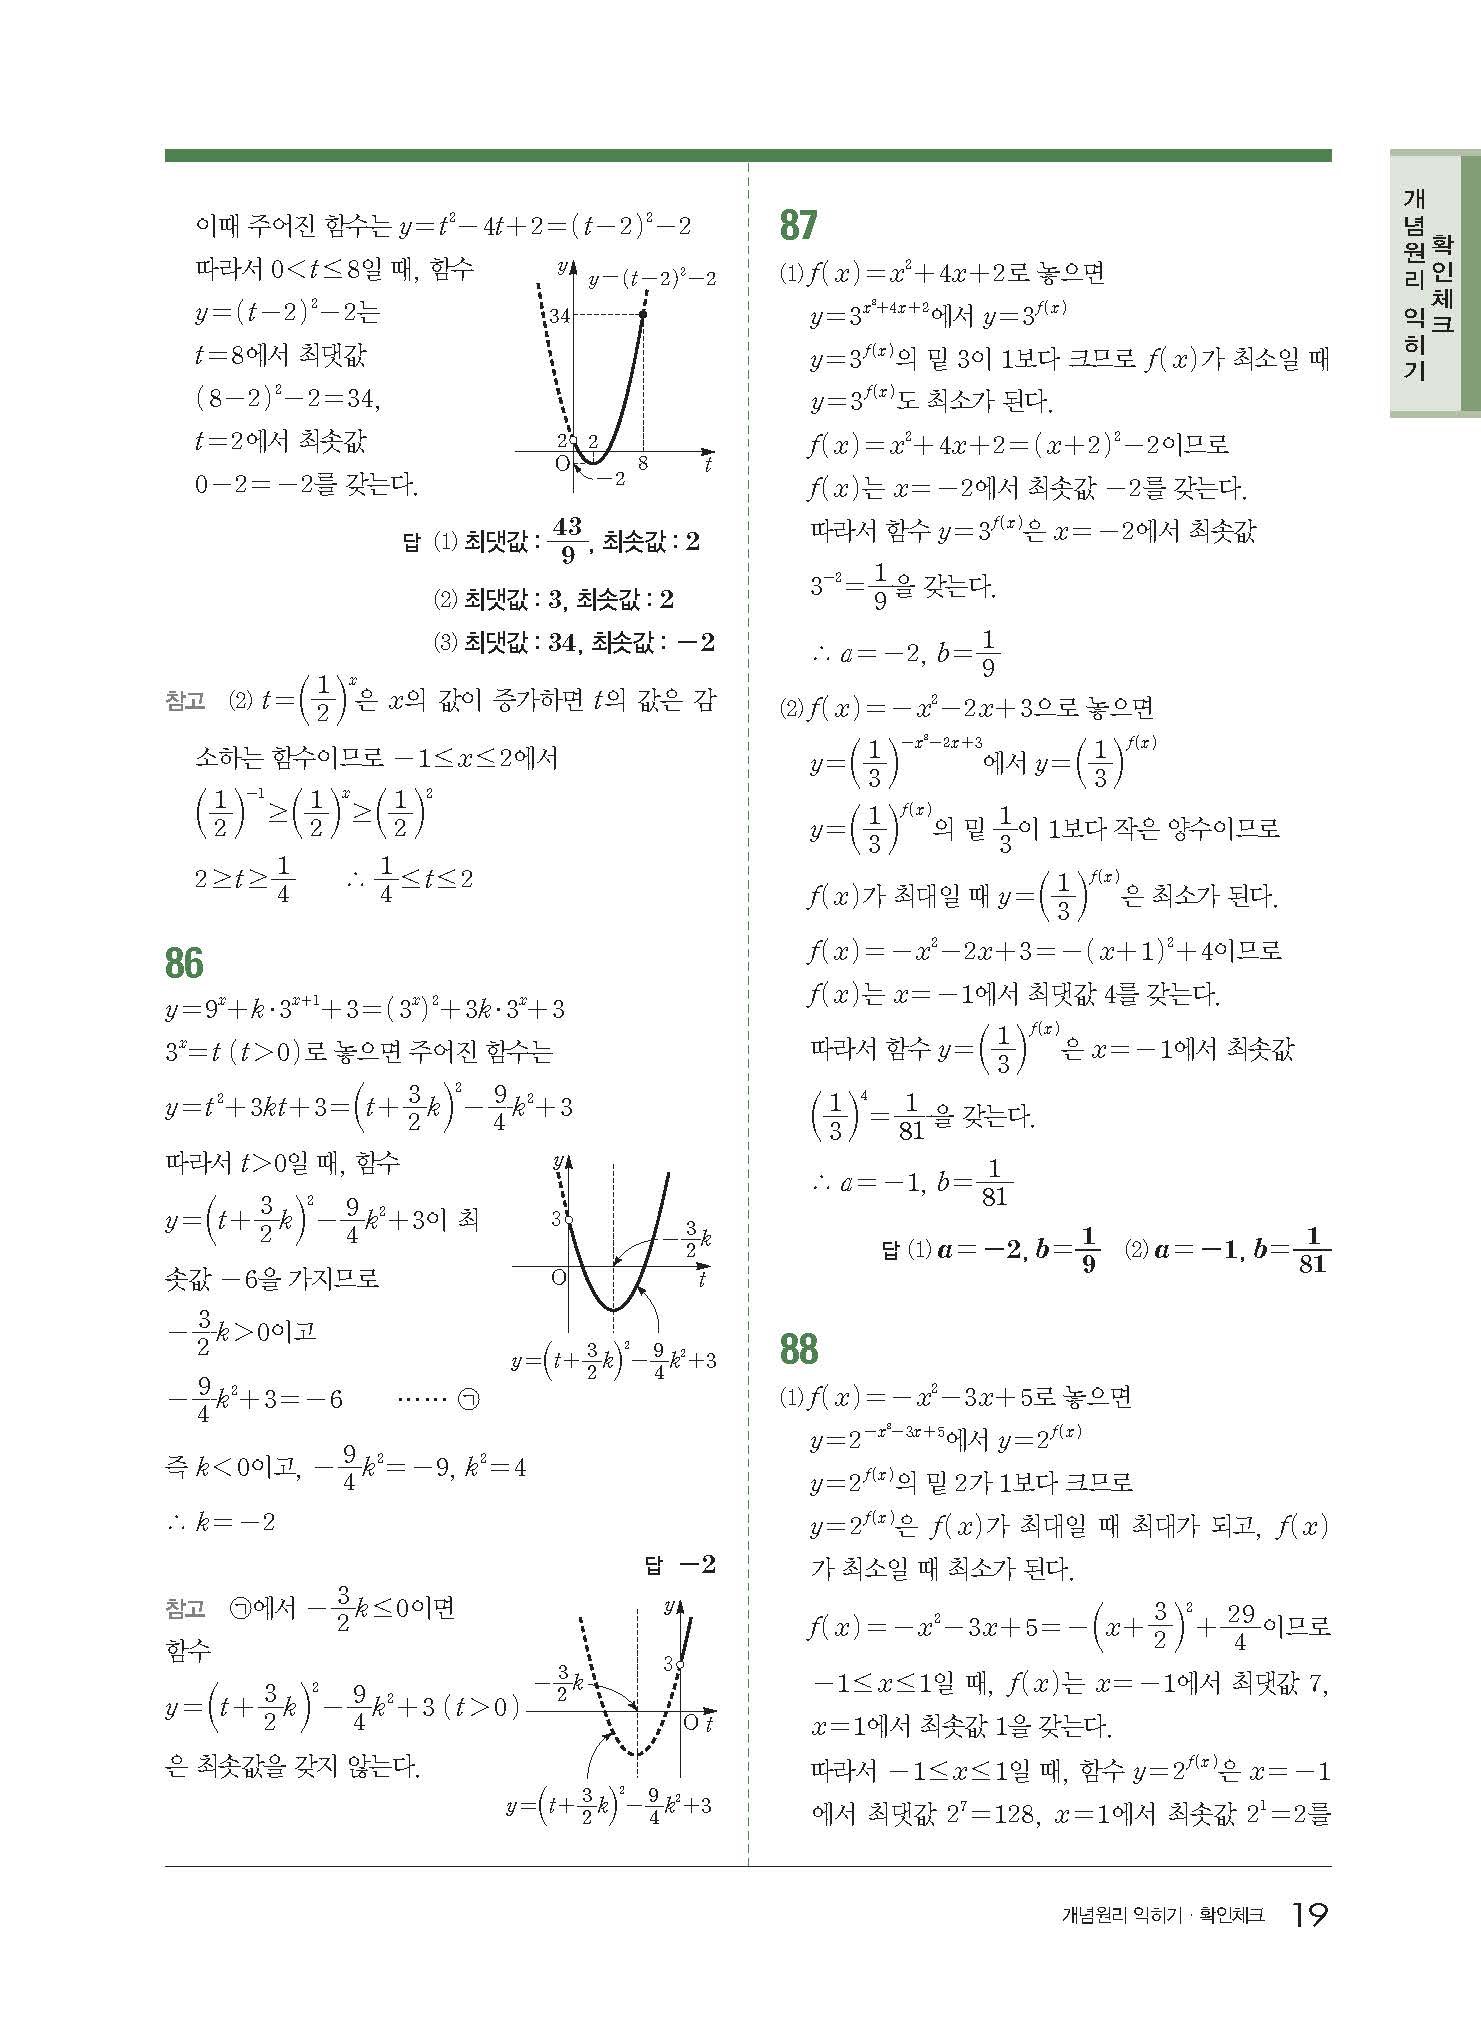 이때 주어진 함수는 y=t²-4t+2=(t-2)²-2
따라서 0<t≤8일 때, 함수
y=(t-2)²-2는
t=8에서 최댓값
(8-2)²-2=34,
t=2에서 최솟값
0-2=-2를 갖는다.
y
y=(t-2)²-2
34
2
2
O
8
t
-2
답 ⑴ 최댓값 : 43/9, 최솟값 : 2
⑵ 최댓값 : 3, 최솟값 : 2
⑶ 최댓값 : 34, 최솟값 : -2
참고 ⑵ t=(1/2)^x은 x의 값이 증가하면 t의 값은 감
소하는 함수이므로 -1≤x≤2에서
(1/2)^-1≥(1/2)^x≥(1/2)^2
2≥t≥1/4 ∴ 1/4≤t≤2
86
y=9^x+k·3^(x+1)+3=(3^x)²+3k·3^x+3
3^x=t (t>0)로 놓으면 주어진 함수는
y=t²+3kt+3=(t+3/2k)²-9/4k²+3
따라서 t>0일 때, 함수
y=(t+3/2k)²-9/4k²+3이 최
솟값 -6을 가지므로
-3/2k>0이고
-9/4k²+3=-6 …… ㉠
즉 k<0이고, -9/4k²=-9, k²=4
∴ k=-2
y
3
-3/2k
O
t
y=(t+3/2k)²-9/4k²+3
답 -2
참고 ㉠에서 -3/2k≤0이면
함수
y=(t+3/2k)²-9/4k²+3 (t>0)
은 최솟값을 갖지 않는다.
y
3
-3/2k
O t
y=(t+3/2k)²-9/4k²+3
87
⑴ f(x)=x²+4x+2로 놓으면
y=3^(x²+4x+2)에서 y=3^f(x)
y=3^f(x)의 밑 3이 1보다 크므로 f(x)가 최소일 때
y=3^f(x)도 최소가 된다.
f(x)=x²+4x+2=(x+2)²-2이므로
f(x)는 x=-2에서 최솟값 -2를 갖는다.
따라서 함수 y=3^f(x)은 x=-2에서 최솟값
3^-2=1/9을 갖는다.
∴ a=-2, b=1/9
⑵ f(x)=-x²-2x+3으로 놓으면
y=(1/3)^(-x²-2x+3)에서 y=(1/3)^f(x)
y=(1/3)^f(x)의 밑 1/3이 1보다 작은 양수이므로
f(x)가 최대일 때 y=(1/3)^f(x)은 최소가 된다.
f(x)=-x²-2x+3=-(x+1)²+4이므로
f(x)는 x=-1에서 최댓값 4를 갖는다.
따라서 함수 y=(1/3)^f(x)은 x=-1에서 최솟값
(1/3)^4=1/81을 갖는다.
∴ a=-1, b=1/81
답 ⑴ a=-2, b=1/9 ⑵ a=-1, b=1/81
88
⑴ f(x)=-x²-3x+5로 놓으면
y=2^(-x²-3x+5)에서 y=2^f(x)
y=2^f(x)의 밑 2가 1보다 크므로
y=2^f(x)은 f(x)가 최대일 때 최대가 되고, f(x)
가 최소일 때 최소가 된다.
f(x)=-x²-3x+5=-(x+3/2)²+29/4이므로
-1≤x≤1일 때, f(x)는 x=-1에서 최댓값 7,
x=1에서 최솟값 1을 갖는다.
따라서 -1≤x≤1일 때, 함수 y=2^f(x)은 x=-1
에서 최댓값 2^7=128, x=1에서 최솟값 2^1=2를
개념원리 익히기
확인체크
개념원리 익히기 · 확인체크 19